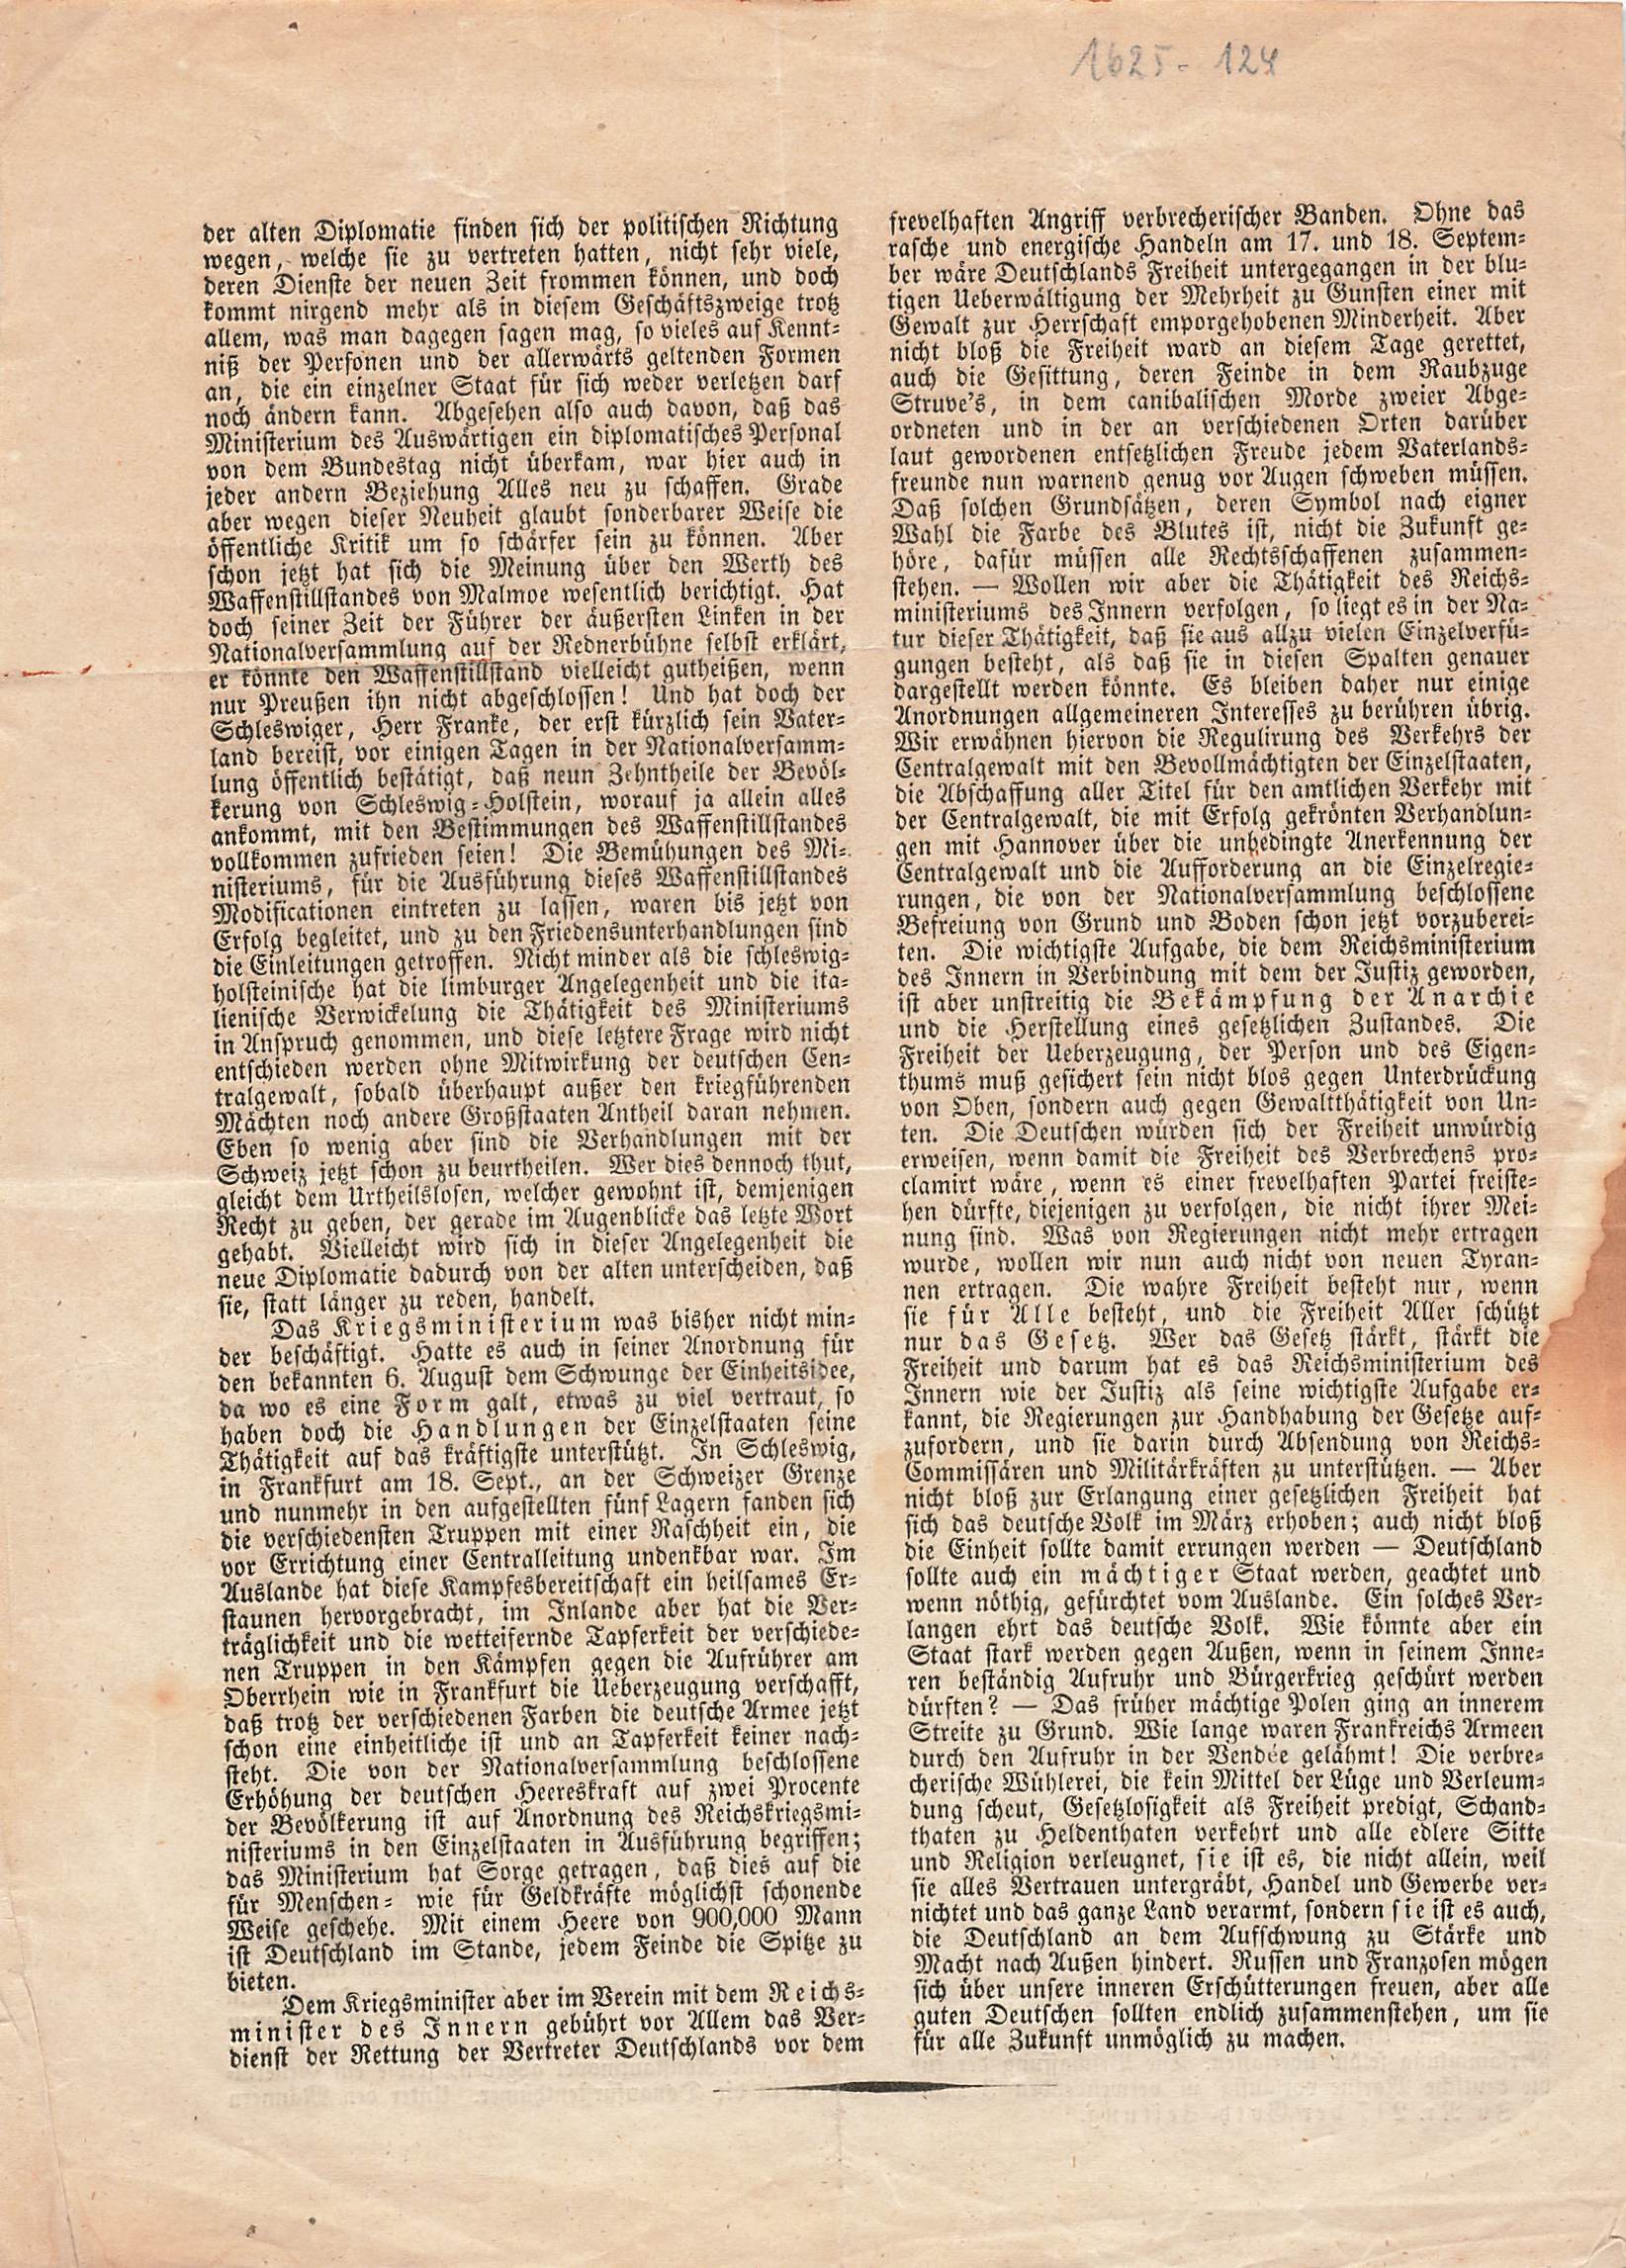 1625 - 124
der alten Diplomatie finden sich der politischen Richtung
wegen, welche sie zu vertreten hatten, nicht sehr viele,
deren Dienste der neuen Zeit frommen können, und doch
kommt nirgend mehr als in diesem Geschäftszweige trotz
allem, was man dagegen sagen mag, so vieles auf Kennt-
niß der Personen und der allerwärts geltenden Formen
an, die ein einzelner Staat für sich weder verletzen darf
noch ändern kann. Abgesehen also auch davon, daß das
Ministerium des Auswärtigen ein diplomatisches Personal
von dem Bundestag nicht überkam, war hier auch in
jeder andern Beziehung Alles neu zu schaffen. Grade
aber wegen dieser Neuheit glaubt sonderbarer Weise die
öffentliche Kritik um so schärfer sein zu können. Aber
schon jetzt hat sich die Meinung über den Werth des
Waffenstillstandes von Malmoe wesentlich berichtigt. Hat
doch seiner Zeit der Führer der äußersten Linken in der
Nationalversammlung auf der Rednerbühne selbst erklärt,
er könnte den Waffenstillstand vielleicht gutheißen, wenn
nur Preußen ihn nicht abgeschlossen! Und hat doch der
Schleswiger, Herr Franke, der erst kürzlich sein Vater-
land bereist, vor einigen Tagen in der Nationalversamm-
lung öffentlich bestätigt, daß neun Zehntheile der Bevöl-
kerung von Schleswig-Holstein, worauf ja allein alles
ankommt, mit den Bestimmungen des Waffenstillstandes
vollkommen zufrieden seien! Die Bemühungen des Mi-
nisteriums, für die Ausführung dieses Waffenstillstandes
Modificationen eintreten zu lassen, waren bis jetzt von
Erfolg begleitet, und zu den Friedensunterhandlungen sind
die Einleitungen getroffen. Nicht minder als die schleswig-
holsteinische hat die limburger Angelegenheit und die ita-
lienische Verwickelung die Thätigkeit des Ministeriums
in Anspruch genommen, und diese letztere Frage wird nicht
entschieden werden ohne Mitwirkung der deutschen Cen-
tralgewalt, sobald überhaupt außer den kriegführenden
Mächten noch andere Großstaaten Antheil daran nehmen.
Eben so wenig aber sind die Verhandlungen mit der
Schweiz jetzt schon zu beurtheilen. Wer dies dennoch thut,
gleicht dem Urtheilslosen, welcher gewohnt ist, demjenigen
Recht zu geben, der gerade im Augenblicke das letzte Wort
gehabt. Vielleicht wird sich in dieser Angelegenheit die
neue Diplomatie dadurch von der alten unterscheiden, daß
sie, statt länger zu reden, handelt.
Das Kriegsministerium was bisher nicht min-
der beschäftigt. Hatte es auch in seiner Anordnung für
den bekannten 6. August dem Schwunge der Einheitsidee,
da wo es eine Form galt, etwas zu viel vertraut, so
haben doch die Handlungen der Einzelstaaten seine
Thätigkeit auf das kräftigste unterstützt. In Schleswig,
in Frankfurt am 18. Sept., an der Schweizer Grenze
und nunmehr in den aufgestellten fünf Lagern fanden sich
die verschiedensten Truppen mit einer Raschheit ein, die
vor Errichtung einer Centralleitung undenkbar war. Im
Auslande hat diese Kampfesbereitschaft ein heilsames Er-
staunen hervorgebracht, im Inlande aber hat die Ver-
träglichkeit und die wetteifernde Tapferkeit der verschiede-
nen Truppen in den Kämpfen gegen die Aufrührer am
Oberrhein wie in Frankfurt die Ueberzeugung verschafft,
daß trotz der verschiedenen Farben die deutsche Armee jetzt
schon eine einheitliche ist und an Tapferkeit keiner nach-
steht. Die von der Nationalversammlung beschlossene
Erhöhung der deutschen Heereskraft auf zwei Procente
der Bevölkerung ist auf Anordnung des Reichskriegsmi-
nisteriums in den Einzelstaaten in Ausführung begriffen;
das Ministerium hat Sorge getragen, daß dies auf die
für Menschen- wie für Geldkräfte möglichst schonende
Weise geschehe. Mit einem Heere von 900,000 Mann
ist Deutschland im Stande, jedem Feinde die Spitze zu
bieten.
Dem Kriegsminister aber im Verein mit dem Reichs-
minister des Innern gebührt vor Allem das Ver-
dienst der Rettung der Vertreter Deutschlands vor dem
frevelhaften Angriff verbrecherischer Banden. Ohne das
rasche und energische Handeln am 17. und 18. Septem-
ber wäre Deutschlands Freiheit untergegangen in der blu-
tigen Ueberwältigung der Mehrheit zu Gunsten einer mit
Gewalt zur Herrschaft emporgehobenen Minderheit. Aber
nicht bloß die Freiheit ward an diesem Tage gerettet,
auch die Gesittung, deren Feinde in dem Raubzuge
Struve's, in dem canibalischen Morde zweier Abge-
ordneten und in der an verschiedenen Orten darüber
laut gewordenen entsetzlichen Freude jedem Vaterlands-
freunde nun warnend genug vor Augen schweben müssen.
Daß solchen Grundsätzen, deren Symbol nach eigner
Wahl die Farbe des Blutes ist, nicht die Zukunft ge-
höre, dafür müssen alle Rechtsschaffenen zusammen-
stehen. — Wollen wir aber die Thätigkeit des Reichs-
ministeriums des Innern verfolgen, so liegt es in der Na-
tur dieser Thätigkeit, daß sie aus allzu vielen Einzelverfü-
gungen besteht, als daß sie in diesen Spalten genauer
dargestellt werden könnte. Es bleiben daher nur einige
Anordnungen allgemeineren Interesses zu berühren übrig.
Wir erwähnen hiervon die Regulirung des Verkehrs der
Centralgewalt mit den Bevollmächtigten der Einzelstaaten,
die Abschaffung aller Titel für den amtlichen Verkehr mit
der Centralgewalt, die mit Erfolg gekrönten Verhandlun-
gen mit Hannover über die unbedingte Anerkennung der
Centralgewalt und die Aufforderung an die Einzelregie-
rungen, die von der Nationalversammlung beschlossene
Befreiung von Grund und Boden schon jetzt vorzuberei-
ten. Die wichtigste Aufgabe, die dem Reichsministerium
des Innern in Verbindung mit dem der Justiz geworden,
ist aber unstreitig die Bekämpfung der Anarchie
und die Herstellung eines gesetzlichen Zustandes. Die
Freiheit der Ueberzeugung, der Person und des Eigen-
thums muß gesichert sein nicht blos gegen Unterdrückung
von Oben, sondern auch gegen Gewaltthätigkeit von Un-
ten. Die Deutschen würden sich der Freiheit unwürdig
erweisen, wenn damit die Freiheit des Verbrechens pro-
clamirt wäre, wenn es einer frevelhaften Partei freiste-
hen dürfte, diejenigen zu verfolgen, die nicht ihrer Mei-
nung sind. Was von Regierungen nicht mehr ertragen
wurde, wollen wir nun auch nicht von neuen Tyran-
nen ertragen. Die wahre Freiheit besteht nur, wenn
sie für Alle besteht, und die Freiheit Aller schützt
nur das Gesetz. Wer das Gesetz stärkt, stärkt die
Freiheit und darum hat es das Reichsministerium des
Innern wie der Justiz als seine wichtigste Aufgabe er-
kannt, die Regierungen zur Handhabung der Gesetze auf-
zufordern, und sie darin durch Absendung von Reichs-
Commissären und Militärkräften zu unterstützen. — Aber
nicht bloß zur Erlangung einer gesetzlichen Freiheit hat
sich das deutsche Volk im März erhoben; auch nicht bloß
die Einheit sollte damit errungen werden — Deutschland
sollte auch ein mächtiger Staat werden, geachtet und
wenn nöthig, gefürchtet vom Auslande. Ein solches Ver-
langen ehrt das deutsche Volk. Wie könnte aber ein
Staat stark werden gegen Außen, wenn in seinem Inne-
ren beständig Aufruhr und Bürgerkrieg geschürt werden
dürften? — Das früher mächtige Polen ging an innerem
Streite zu Grund. Wie lange waren Frankreichs Armeen
durch den Aufruhr in der Vendée gelähmt! Die verbre-
cherische Wühlerei, die kein Mittel der Lüge und Verleum-
dung scheut, Gesetzlosigkeit als Freiheit predigt, Schand-
thaten zu Heldenthaten verkehrt und alle edlere Sitte
und Religion verleugnet, sie ist es, die nicht allein, weil
sie alles Vertrauen untergräbt, Handel und Gewerbe ver-
nichtet und das ganze Land verarmt, sondern sie ist es auch,
die Deutschland an dem Aufschwung zu Stärke und
Macht nach Außen hindert. Russen und Franzosen mögen
sich über unsere inneren Erschütterungen freuen, aber alle
guten Deutschen sollten endlich zusammenstehen, um sie
für alle Zukunft unmöglich zu machen.